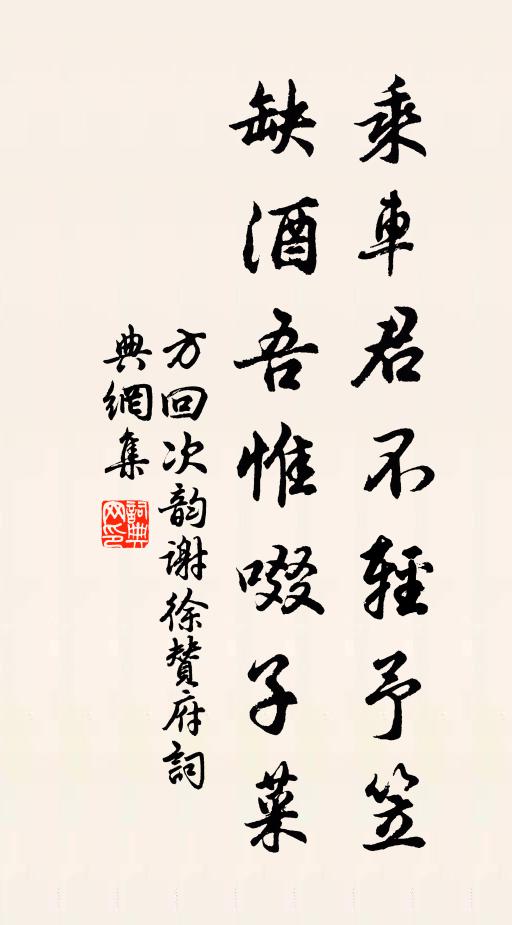 乘車君不輕予笠
缺酒吾惟啜子菜
方回次韵谢徐赞府詞
典網集
詞典网印